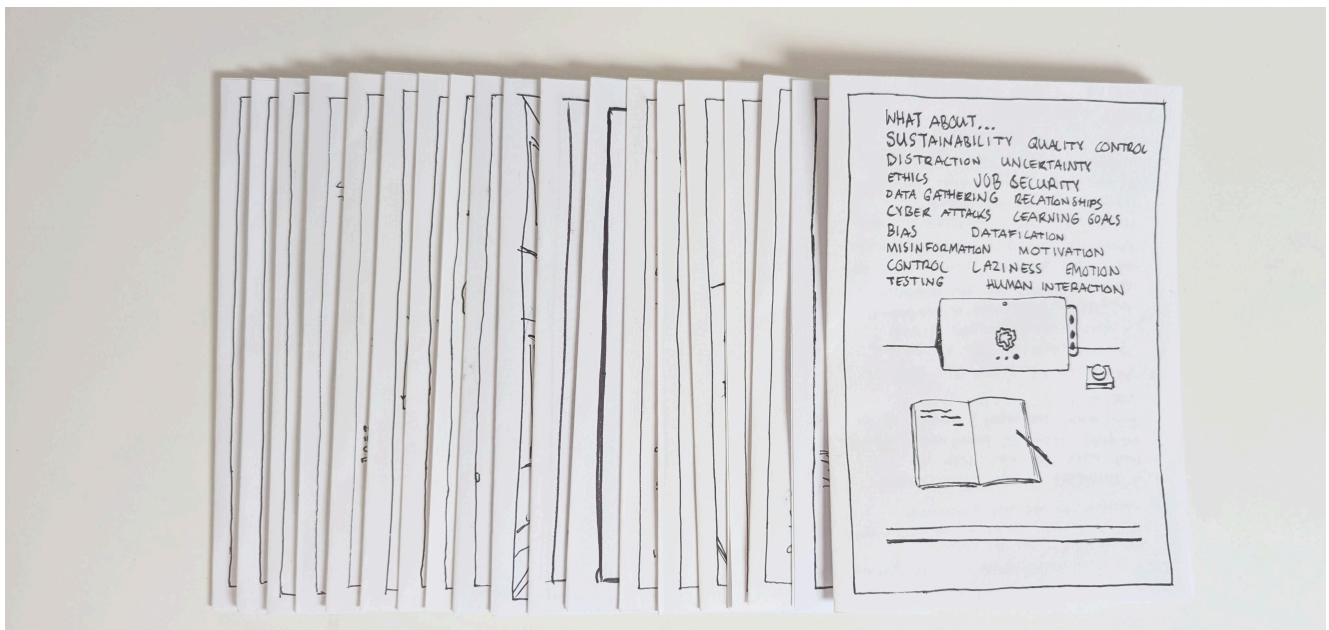 WHAT ABOUT...
SUSTAINABILITY QUALITY CONTROL
DISTRACTION UNCERTAINTY
ETHICS JOB SECURITY
DATA GATHERING RELATIONSHIPS
CYBER ATTACKS LEARNING GOALS
BIAS DATAFICATION
MISINFORMATION MOTIVATION
CONTROL LAZINESS EMOTION
TESTING HUMAN INTERACTION